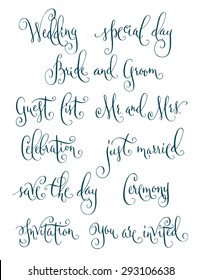 Wedding special day
Bride and Groom
Guest List Mr. and Mrs.
Celebration just married
save the day Ceremony
Invitation You are invited
shutterstock.com · 293106638